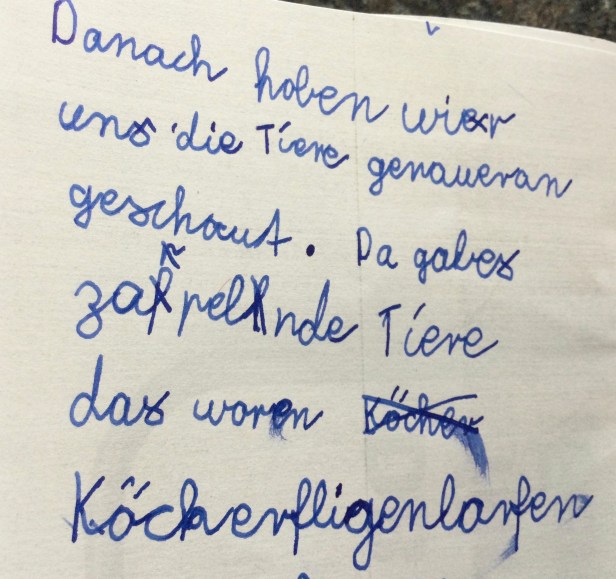 Danach haben wir
uns die Tiere genaueran
geschaut. Da gabes
zappelnde Tiere
das waren Köcher
Köcherfligenlarfen